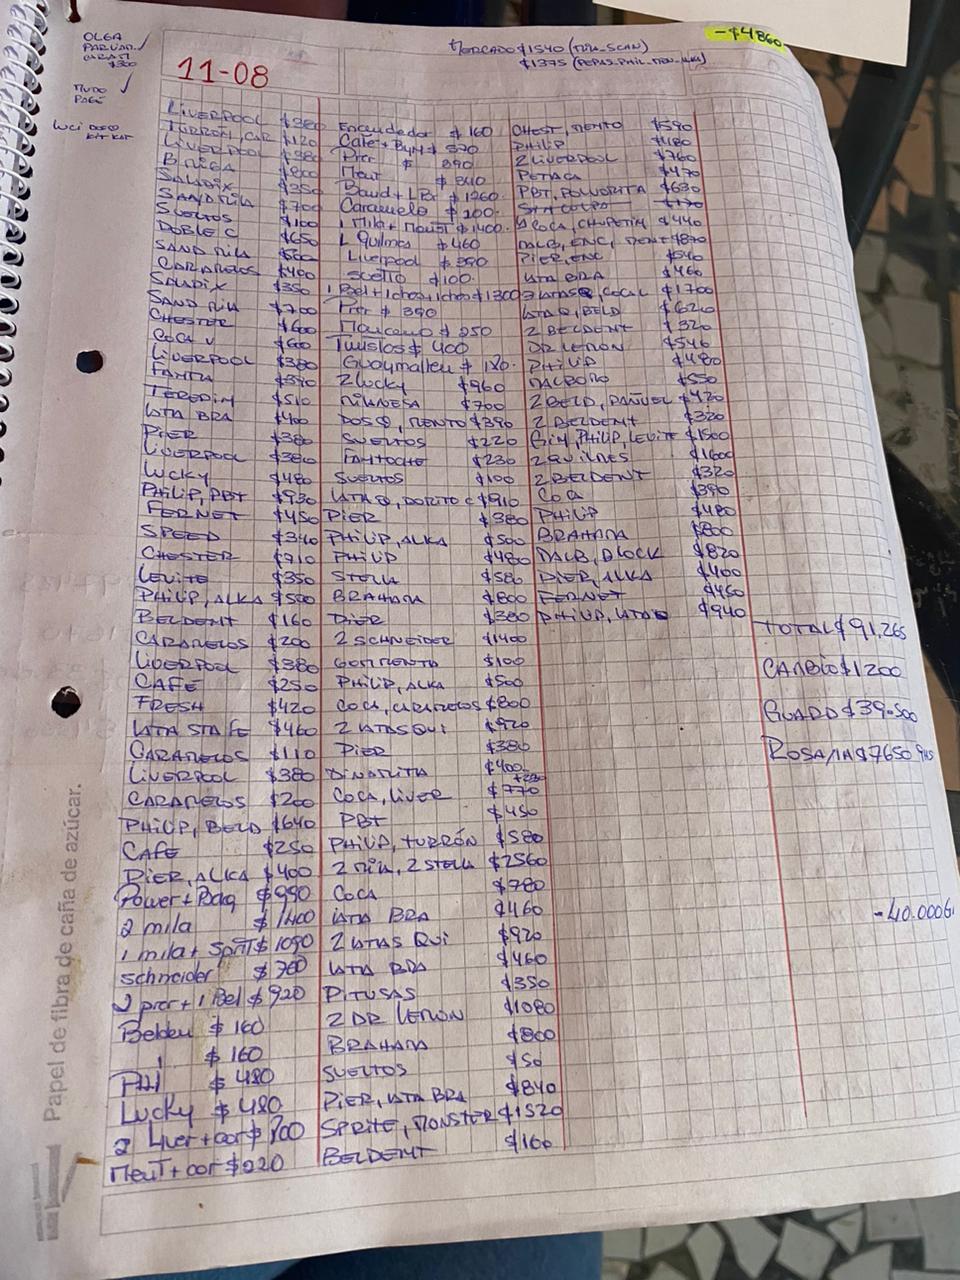 OLGA
$300
PAGÓ
KIT KAT
MERCADO $1540
$1375
-$4860
11-08
LIVERPOOL $380
TURRON, CAR $120
LIVERPOOL $380
$800
SALADIX $350
SAND MILA $700
SUELTOS $100
DOBLE C $650
SAND MILA $500
CARAMELOS $400
SALADIX $350
SAND MILA $700
CHESTER $600
COCA V $600
LIVERPOOL $380
FANTA $390
TEREDIM $510
LATA BRA $400
PIER $380
LIVERPOOL $380
LUCKY $480
PHILIP, PBT $930
FERNET $450
SPEED $340
CHESTER $910
LEVITE $350
PHILIP, ALKA $500
BELDENT $160
CARAMELOS $200
LIVERPOOL $380
CAFE $250
FRESH $420
LATA STA FE $460
CARAMELOS $110
LIVERPOOL $380
CARAMELOS $200
PHILIP, BELD $640
CAFE $250
PIER, ALKA $400
Power + $990
2 mila $1400
1 mila + Sprit $1090
schneider $700
2 pier + 1 Bel $920
Belden $160
1 $160
Phil $480
Lucky $480
2 Liver + cor $800
Ment + cor $220
Encendedor $160
Cafe + $370
Pier $390
Ment $340
$1260
Caramelo $200
1 Mila + $1400
1 Quilmes $460
Liverpool $390
suelto $100
$1300
Pier $390
$250
$400
Guaymallen $120
2 lucky $960
MILANESA $700
MENTO $390
SUELTOS $220
FANTOCHE $230
SUELTOS $100
LATA Q, DORITO C $910
PIER $380
PHILIP, ALKA $500
PHILIP $480
STELLA $580
BRAHAMA $800
PIER $380
2 SCHNEIDER $1400
$100
PHILIP, ALKA $500
COCA, CARAMELOS $800
2 LATAS QUI $920
PIER $380
$400
COCA, LIVER $770
PBT $450
PHILIP, TURRÓN $580
2 MILA, 2 STELLA $2560
COCA $780
LATA BRA $460
2 LATAS QUI $920
LATA BRA $460
PITUSAS $350
2 DR LEMON $1080
BRAHAMA $800
SUELTOS $50
PIER, LATA BRA $840
SPRITE, MONSTER $1520
BELDENT $160
CHEST, MENTO $590
PHILIP $480
2 LIVERPOOL $760
PETACA $470
PBT, POLVORITA $630
$170
COCA, CHUPETIN $440
PIER, ENC $540
LATA BRA $460
$1700
LATA Q, BELD $620
2 BELDENT $320
DR LEMON $546
PHILIP $480
MALBORO $550
$420
2 BELDENT $320
PHILIP, LEVITE $1500
2 QUILMES $1600
2 BELDENT $320
COCA $390
PHILIP $480
BRAHAMA $800
MALB, BLOCK $820
PIER, ALKA $400
FERNET $450
PHILIP, LATA $940
TOTAL $91,265
CAMBIO $1200
GUARD $39.500
$7650
-40.000
Papel de fibra de caña de azúcar.